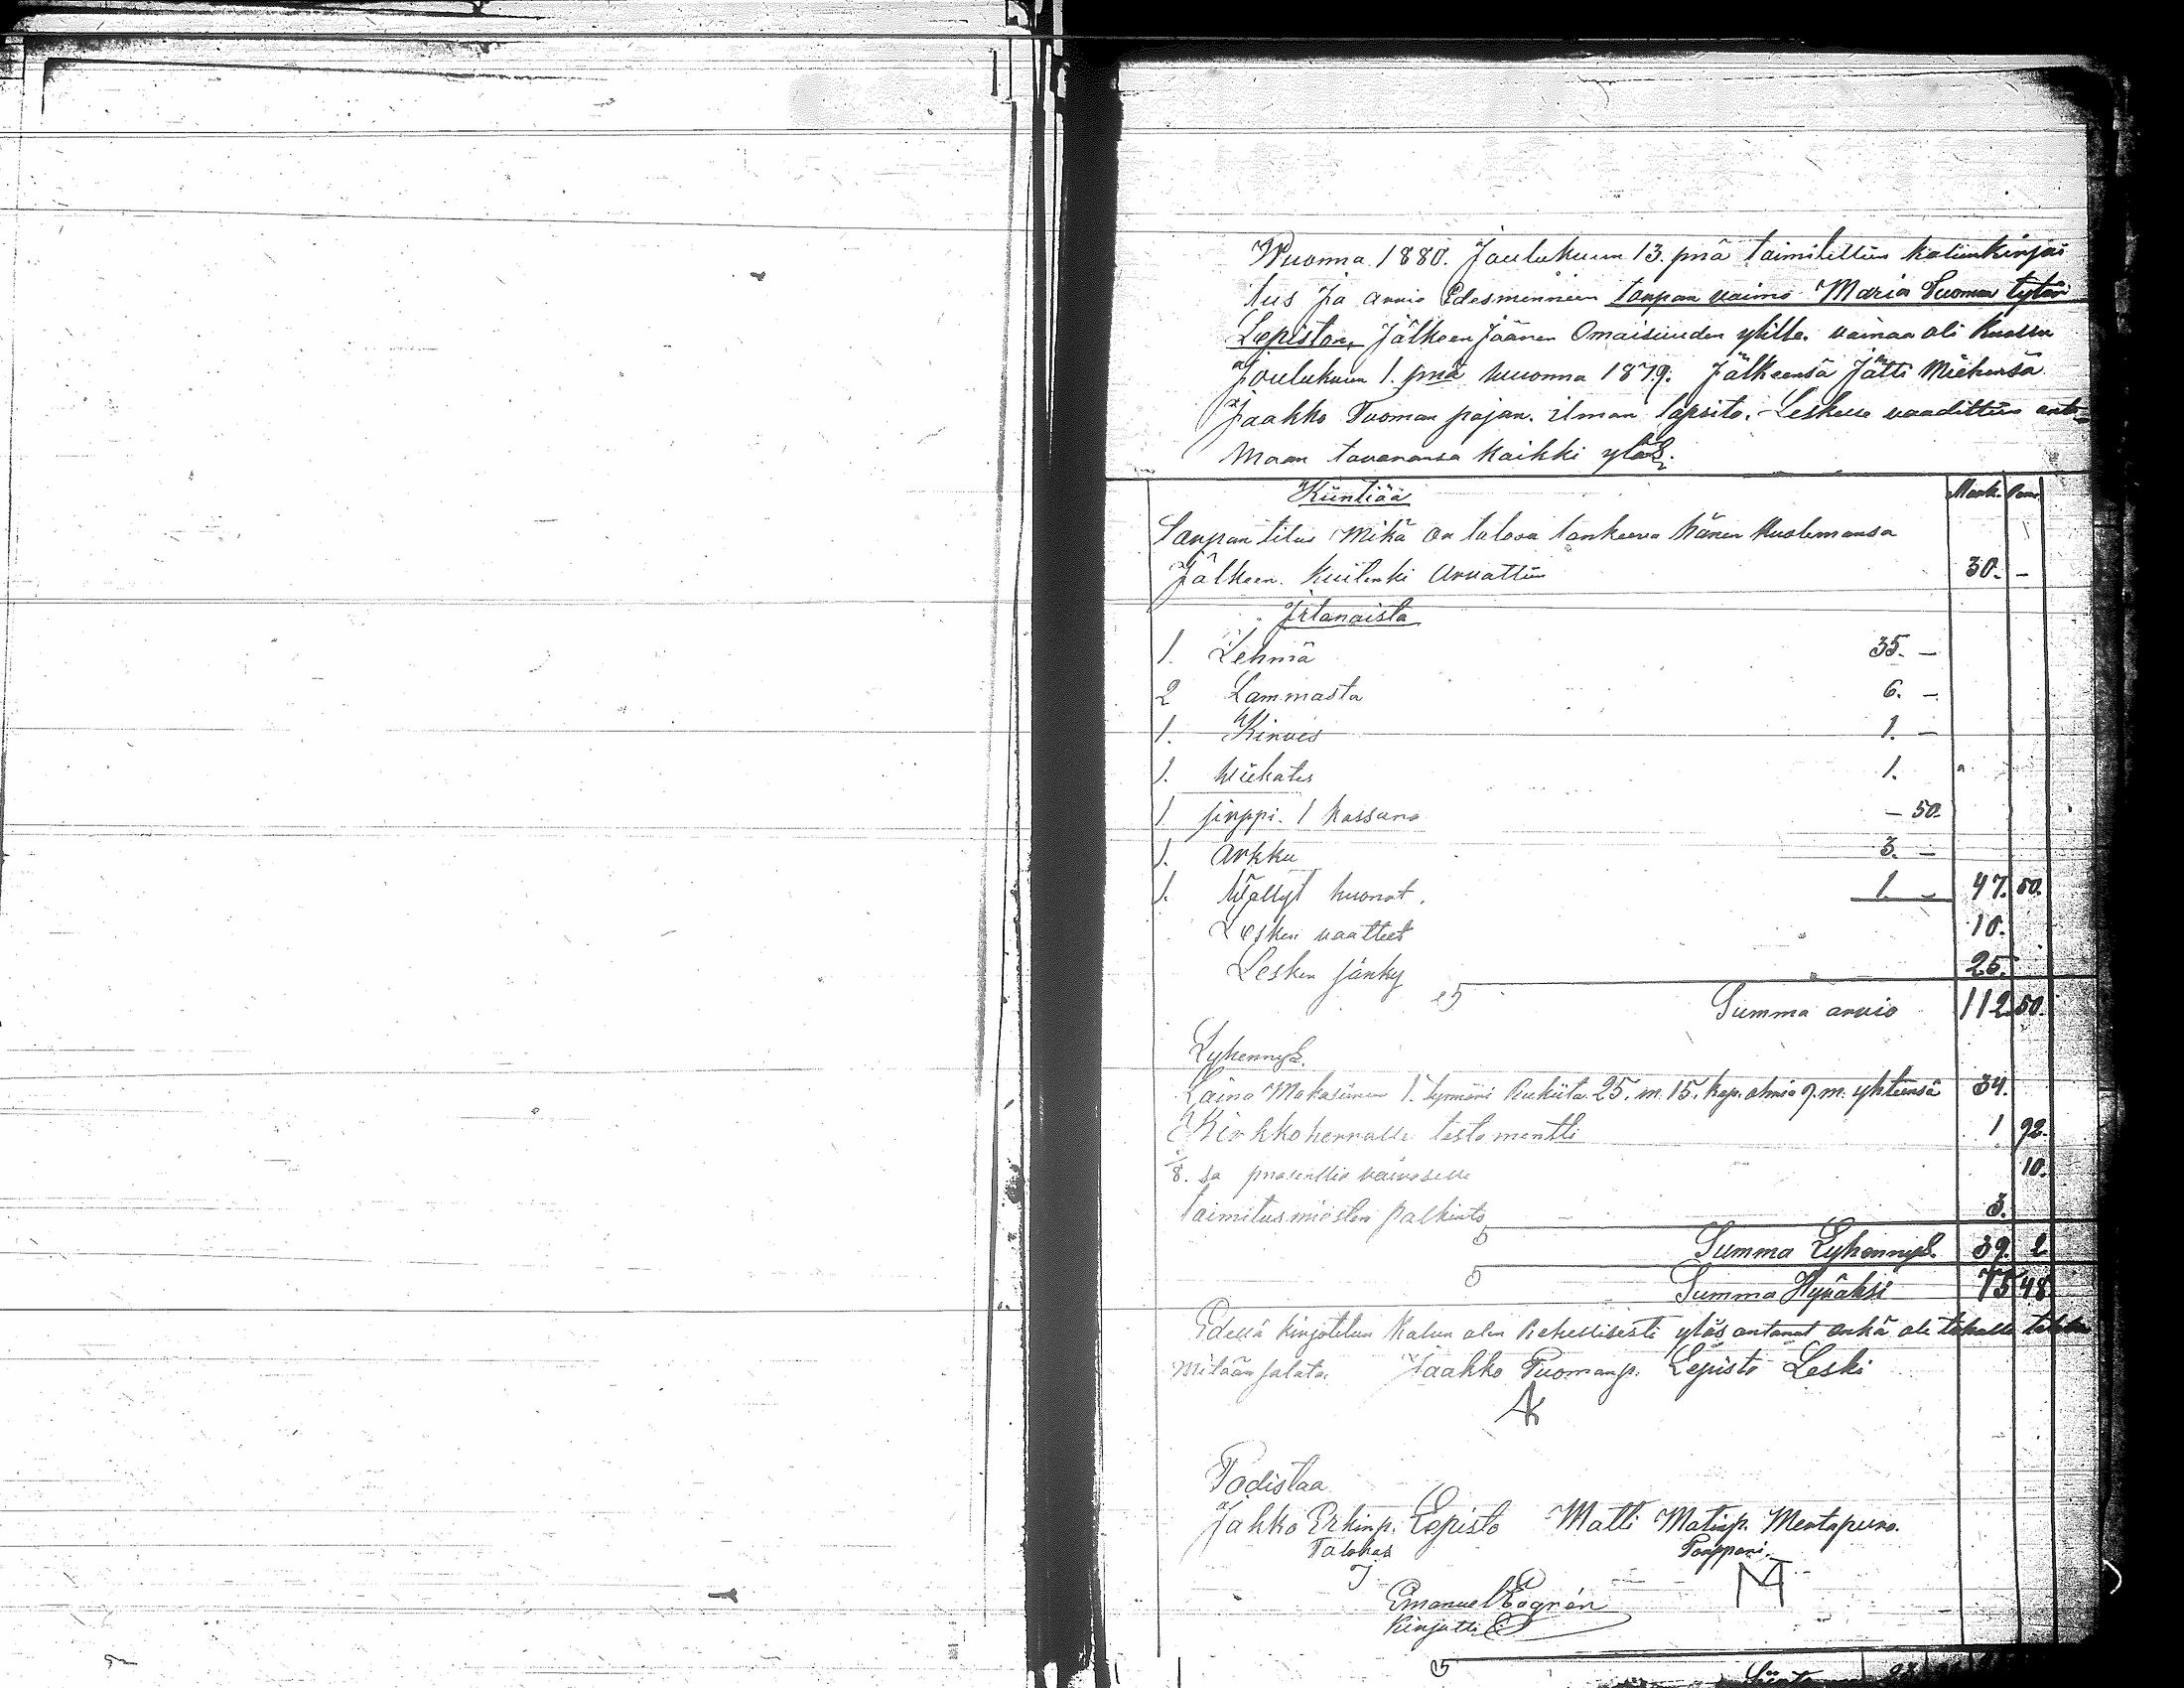 Wuonna 1880. Joulukuun 13. pnä toimitettiin kalunkirjoi
tus ja arvio Edesmennen torpan vaimo Maria Tuoman tytär
Lepiston, Jälkeen Jäänen Omaisuuden ylitte. vainaa oli kuollu
Joulukuun 1. pnä vuonna 1879. Jälkeensä Jätti Miehensä
Jaakko Tuoman pojan. ilman lapsita. Leskeä vaadittiin anta-
Maan tavaransa kaikki ylös.
Kiintiää Mark. Pen.
Torpan titus Mikä on talosa hänen kuolemansa
Jälkeen. kuitenki Arvattiin 30. -
Irtanaista
1. Lehmä 35. -
2 Lammasta 6. -
1. Kirves 1. -
1. Wiikates 1.
1 sirppi. 1 kassara - 50.
1. Arkku 3. -
1. Wällyt huonot. 1. - 47. 50.
Lesken vaatteet 10.
Lesken sänky 25.
Summa arvio 112. 50.
Lyhennys.
Laina Makasiinin 1. tynnöri Rukiita 25. m. 15. kap. ohria 9. m. yhteensä 34.
Kirkkoherralle testamentti 1 92.
1/8. sa prosenttia vaivaselle 10.
toimitusmiesten palkinto 3.
Summa Lyhennys. 39. 2
Summa Hyväksi 75 48
Edellä kirjotetun kalun olen Rehellisesti ylös antanut enkä ole tahalla
Mitään salata. Jaakko Tuomanp. Lepistö Leski
Todistaa
Jakko Erkinp. Lepisto Matti Matinp. Mentapuro.
Talokas Torppari.
Emanuel
Kirjotti